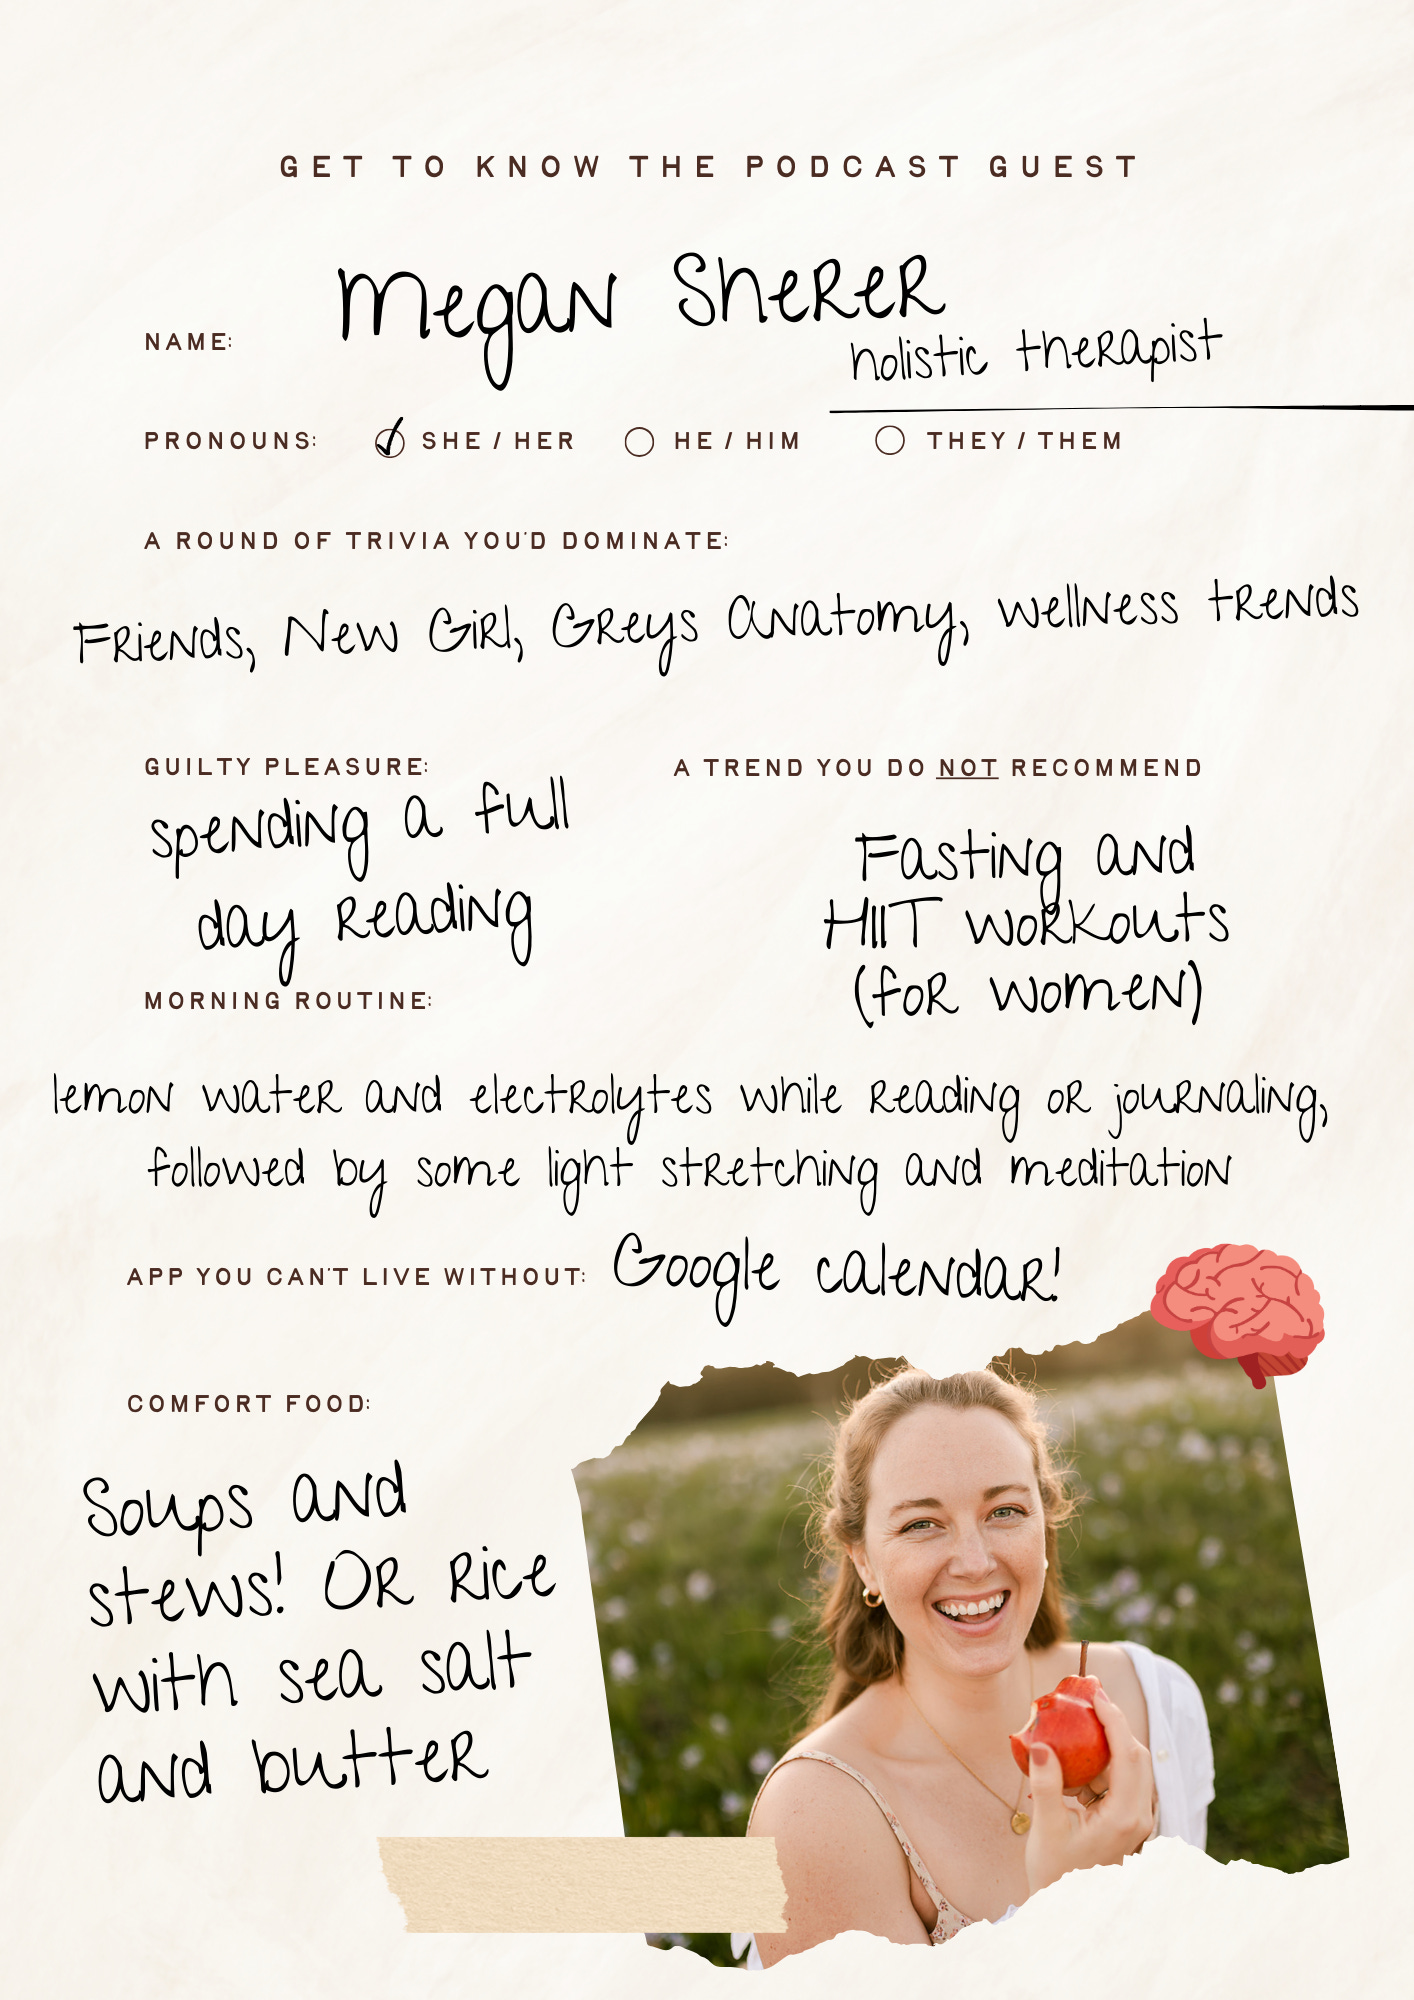 GET TO KNOW THE PODCAST GUEST
NAME: Megan Sherer
holistic therapist
PRONOUNS: SHE / HER HE / HIM THEY / THEM
A ROUND OF TRIVIA YOU'D DOMINATE:
Friends, New Girl, Greys Anatomy, wellness trends
GUILTY PLEASURE:
spending a full
day reading
A TREND YOU DO NOT RECOMMEND
Fasting and
HIIT workouts
(for women)
MORNING ROUTINE:
lemon water and electrolytes while reading or journaling,
followed by some light stretching and meditation
APP YOU CAN'T LIVE WITHOUT: Google calendar!
COMFORT FOOD:
Soups and
stews! Or rice
with sea salt
and butter